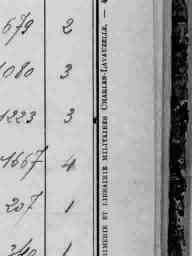 679 2
1080 3
1223 3
1667 4
207 1
1
IMERIE ET LIBRAIRIE MILITAIRES CHARLES-LAVAUZELLE. —